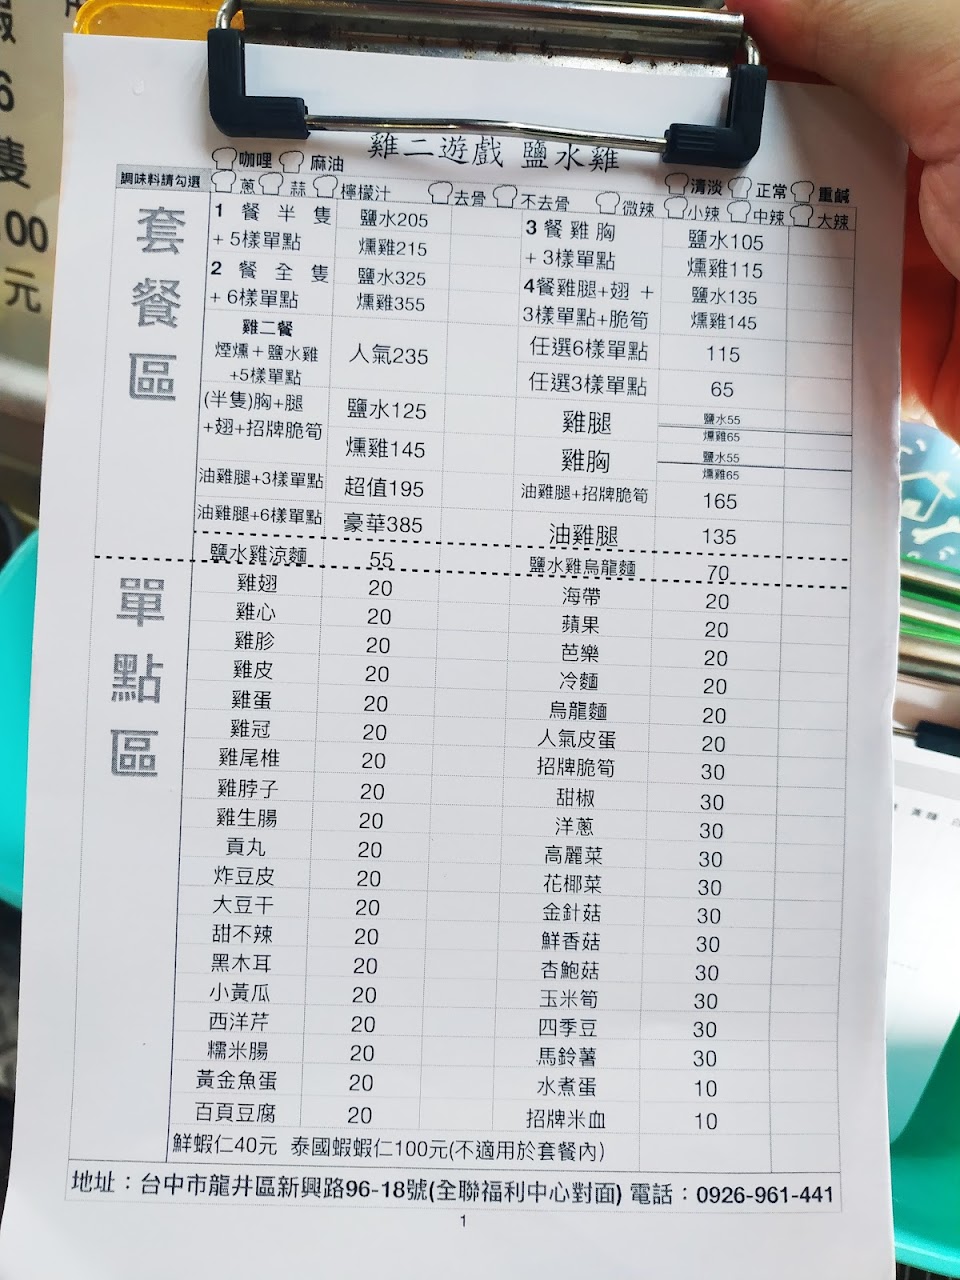 雞二遊戲 鹽水雞
調味料請勾選
咖哩 麻油
蔥 蒜 檸檬汁 去骨 不去骨 微辣 小辣 中辣 大辣
清淡 正常 重鹹
套餐區
1 餐半隻 + 5樣單點 鹽水205 燻雞215
3餐雞胸 + 3樣單點 鹽水105 燻雞115
2 餐全隻 + 6樣單點 鹽水325 燻雞355
4餐雞腿+翅 + 3樣單點+脆筍 鹽水135 燻雞145
雞二餐 煙燻＋鹽水雞 +5樣單點 人氣235
任選6樣單點 115
任選3樣單點 65
(半隻)胸+腿 +翅+招牌脆筍 鹽水125 燻雞145
雞腿 鹽水55 燻雞65
雞胸 鹽水55 燻雞65
油雞腿+3樣單點 超值195
油雞腿+招牌脆筍 165
油雞腿+6樣單點 豪華385
油雞腿 135
鹽水雞涼麵 55
鹽水雞烏龍麵 70
單點區
雞翅 20 海帶 20
雞心 20 蘋果 20
雞胗 20 芭樂 20
雞皮 20 冷麵 20
雞蛋 20 烏龍麵 20
雞冠 20 人氣皮蛋 20
雞尾椎 20 招牌脆筍 30
雞脖子 20 甜椒 30
雞生腸 20 洋蔥 30
貢丸 20 高麗菜 30
炸豆皮 20 花椰菜 30
大豆干 20 金針菇 30
甜不辣 20 鮮香菇 30
黑木耳 20 杏鮑菇 30
小黃瓜 20 玉米筍 30
西洋芹 20 四季豆 30
糯米腸 20 馬鈴薯 30
黃金魚蛋 20 水煮蛋 10
百頁豆腐 20 招牌米血 10
鮮蝦仁40元 泰國蝦蝦仁100元(不適用於套餐內)
地址：台中市龍井區新興路96-18號(全聯福利中心對面) 電話：0926-961-441
1
6
隻
.00
元